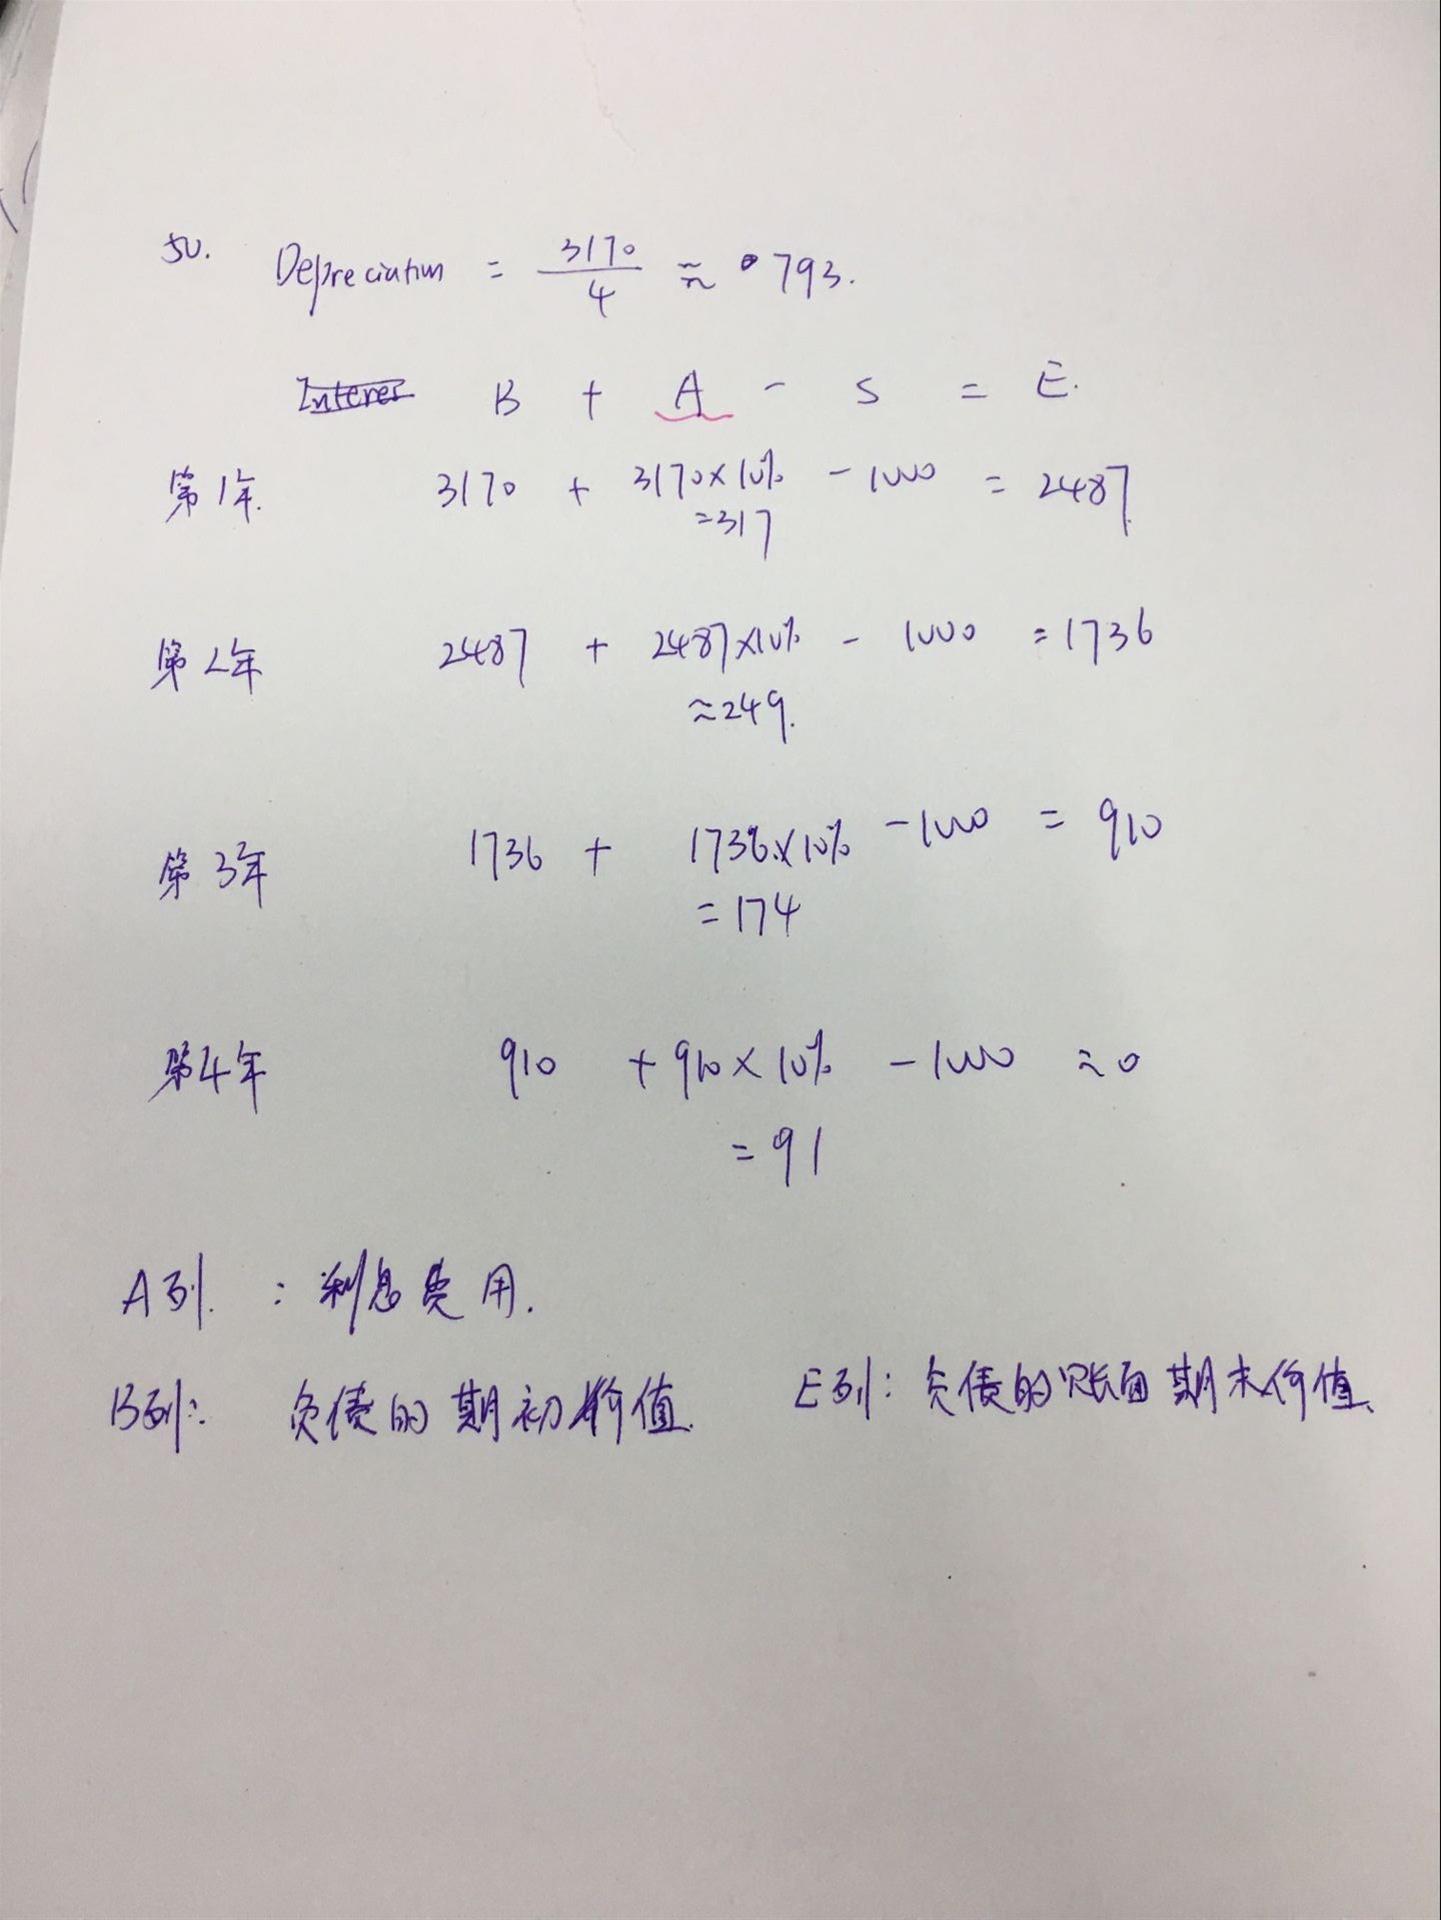 50. Depreciation = 3170/4 ≈ 793.
Interes B + A - S = E.
第1年. 3170 + 3170×10% - 1000 = 2487
=317
第2年 2487 + 2487×10% - 1000 = 1736
≈249.
第3年 1736 + 1736×10% - 1000 = 910
=174
第4年 910 + 910×10% - 1000 ≈0
=91
A列. : 利息费用.
B列: 负债的期初价值. E列: 负债的账面期末价值.